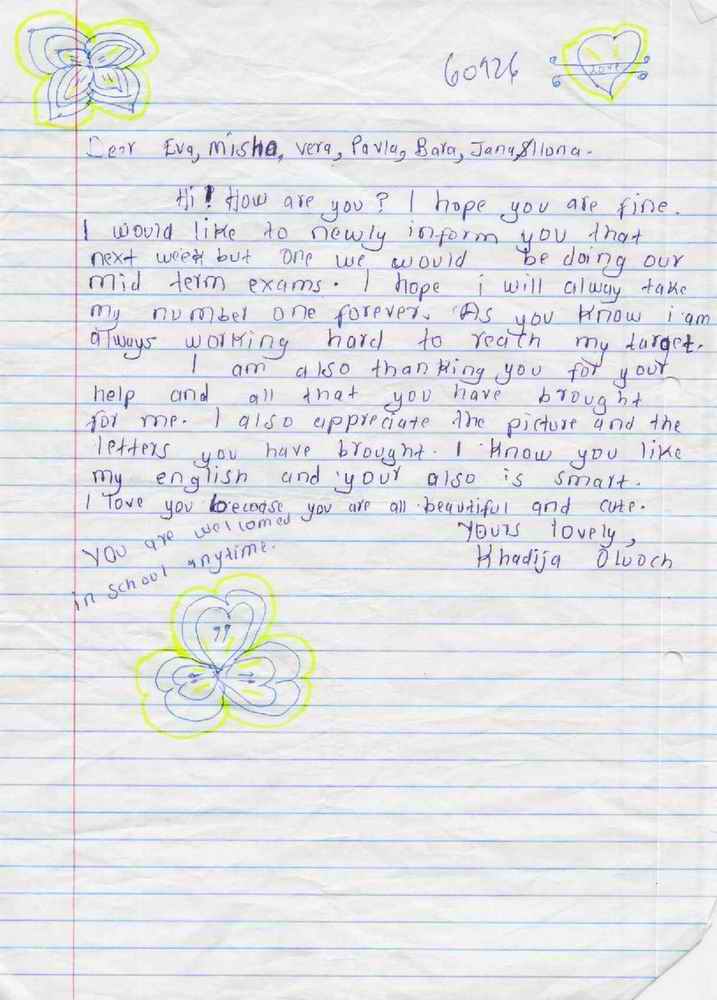 60426
Love
Dear Eva, Misha, Vera, Pavla, Bara, Jana & Ilona.
Hi! How are you? I hope you are fine.
I would like to newly inform you that
next week but one we would be doing our
mid term exams. I hope i will alway take
my number one forever. As you know i am
always working hard to reach my target.
I am also thanking you for your
help and all that you have brought
for me. I also appreciate the picture and the
letters you have brought. I know you like
my english and your also is smart.
I love you because you are all beautiful and cute.
Yours lovely,
Khadija Oluoch
You are welcomed
in school anytime.